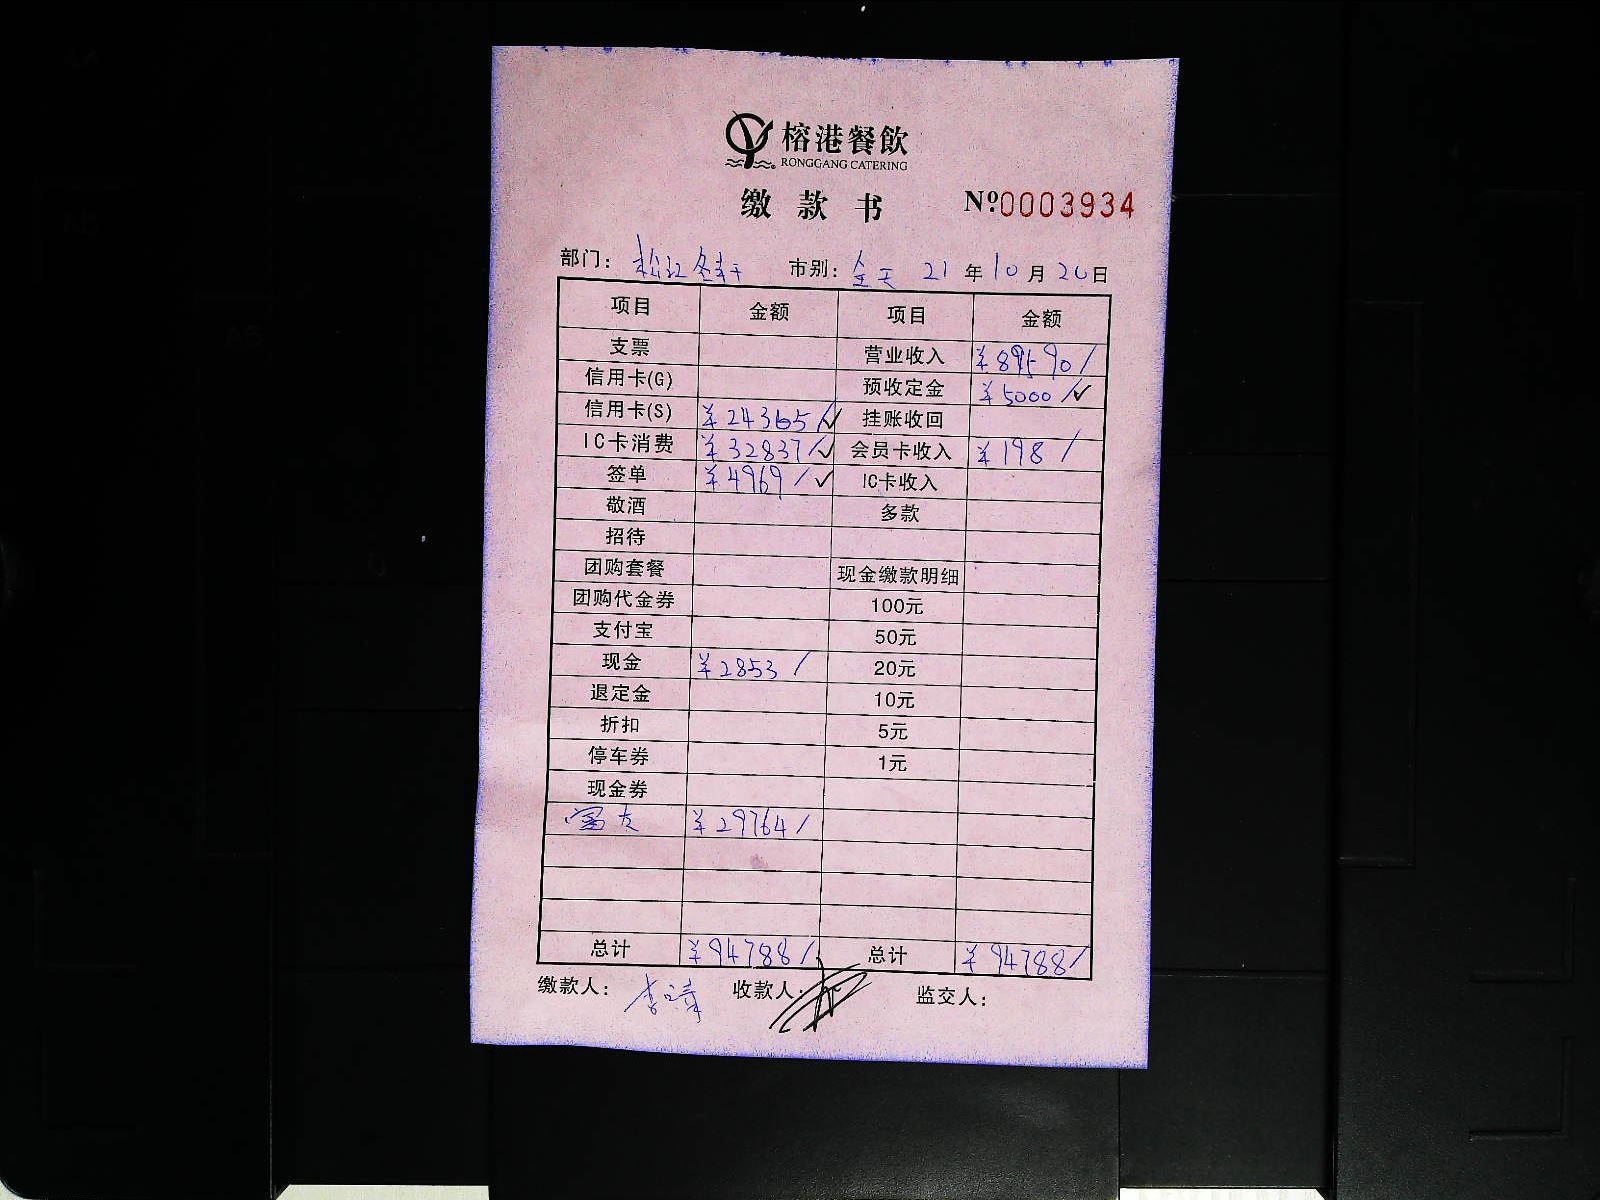 榕港餐飲
RONGGANG CATERING
缴款书 №0003934
部门: 松江 市别: 全天 21年10月20日
项目 金额 项目 金额
支票 营业收入 ¥89590/
信用卡(G) 预收定金 ¥5000/✓
信用卡(S) ¥24365/✓ 挂账收回
IC卡消费 ¥32837/✓ 会员卡收入 ¥198/
签单 ¥4969/✓ IC卡收入
敬酒 多款
招待
团购套餐 现金缴款明细
团购代金券 100元
支付宝 50元
现金 ¥2853/ 20元
退定金 10元
折扣 5元
停车券 1元
现金券
富友 ¥29764/
总计 ¥94788/ 总计 ¥94788/
缴款人: 收款人: 监交人: